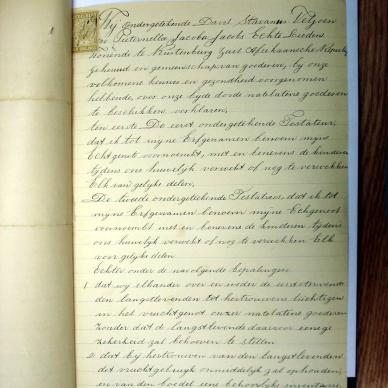 Wij ondergetekende David Stavanus Viljoen
en Pieternella Jacoba Jacobs Echte Lieden
Wonende te Rustenburg Zuid Afrikaansche Republiek
gehuwd in gemeenschap van goederen, bij onze
volkomene kennis en gezondheid voorgenomen
hebbende, over onze bijde dorde natelatene goederen
te beschikken verklaren;
ten eerste. De eerst ondergetekende Testateur,
dat ik tot mijne Erfgenamen benoem mijne
Echtgenote voornoemt, met en benevens de kinderen
tijdens ons huwelijk verwekt of nog te verwekken
Elk van gelijke delen,
De tweede ondergetekende Testatrice, dat ik tot
mijne Erfgenamen benoem mijne Echtgenoot
voornoemt met en benevens de kinderen tijdens
ons huwelijk verwekt of nog te verwekken Elk
voor gelijke delen
Echter onder de navolgende bepalingen
1. dat wij elkander over en weder de eerststervende
den langstlevenden tot hertrouwens luchtigen
in het vruchtgenot onzer natelatene goederen
zonder dat de langstlevende daarvoor eenige
zekerheid zal behoeven te stellen
2. dat bij hertrouwen van den langstlevenden
dit vruchtgebruik onmiddelijk zal ophouden,
en van den boedel eene behoorlijke inventaris